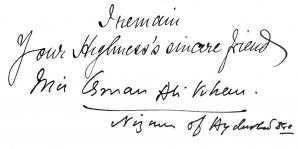 I remain
Your Highness's sincere friend
Mir Osman Ali Khan.
Nizam of Hyderabad